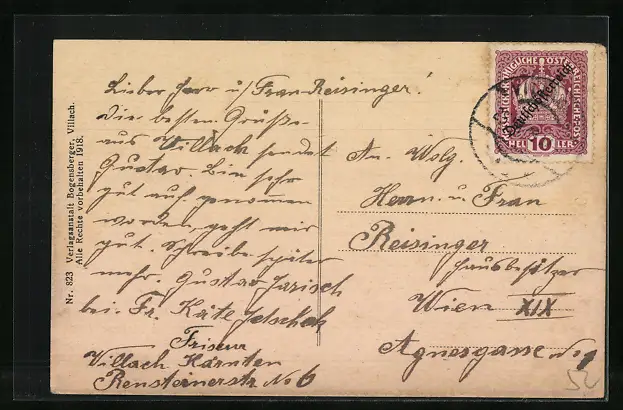 Lieber Herr u/ Frau Reisinger!
die besten Grüße
aus Villach sendet
Gustav. Bin sehr
gut auf genommen
worden, geht mir
gut. Schreibe später
mehr. Gustav Jarisch
bei Fr. Käte Jetschek
Friseur
Villach Kärnten
Rensteinerstr No 6
Nr. 823 Verlagsanstalt Bogensberger, Villach.
Alle Rechte vorbehalten 1918.
KAISERLICHE KÖNIGLICHE ÖSTERREICHISCHE POST
Deutschösterreich
HEL 10 LER
An Wolg.
Herrn u Frau
Reisinger
Hausbesitzer
Wien XIX
Agnesgasse No 1
52